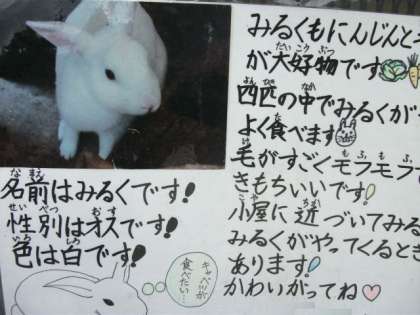 みるくもにんじんと
が大好物です
だいこうぶつ
四匹の中でみるくが
よんひき なか
よく食べます
毛がすごくモフモフ
きもちいいです!
小屋に近づいてみる
みるくがやってくるとき
あります!
かわいがってね♡
名前はみるくです!
なまえ
性別はオスです!
せいべつ
色は白です!
いろ しろ
キャベツが
食べたい…